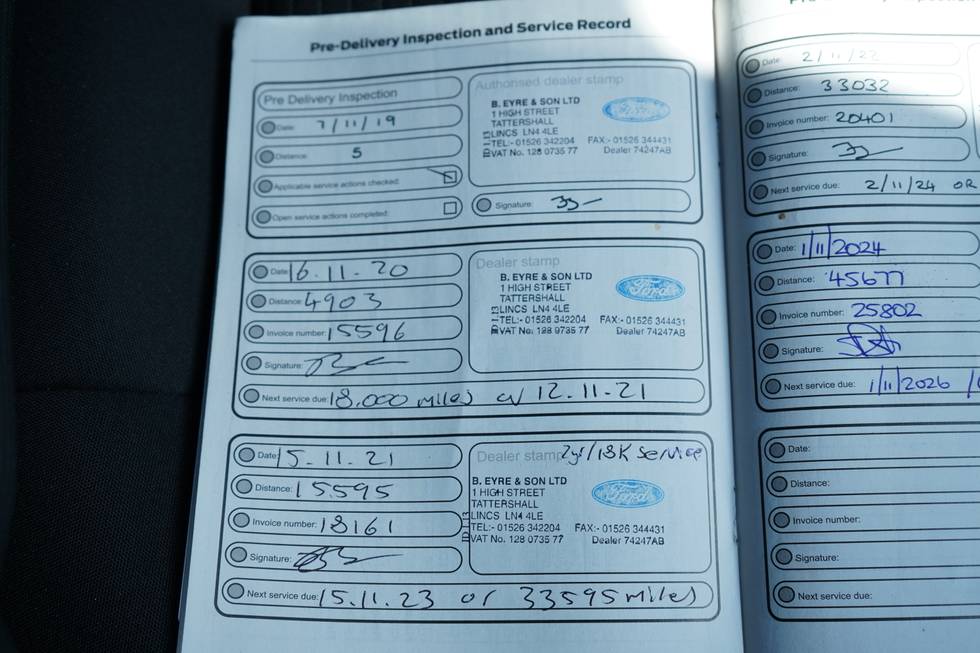 Pre-Delivery Inspection and Service Record
Pre Delivery Inspection
Date: 7/11/19
Distance: 5
Applicable service actions checked:
Open service actions completed:
Authorised dealer stamp
B. EYRE & SON LTD
1 HIGH STREET
TATTERSHALL
LINCS LN4 4LE
TEL:- 01526 342204 FAX:- 01526 344431
VAT No. 128 0735 77 Dealer 74247AB
Ford
Signature:
Date: 16.11.20
Distance: 4903
Invoice number: 15596
Signature:
Next service due: 18,000 miles or 12.11.21
Dealer stamp
B. EYRE & SON LTD
1 HIGH STREET
TATTERSHALL
LINCS LN4 4LE
TEL:- 01526 342204 FAX:- 01526 344431
VAT No. 128 0735 77 Dealer 74247AB
Ford
Date: 15.11.21
Distance: 15595
Invoice number: 18161
Signature:
Next service due: 15.11.23 or 33595 miles
Dealer stamp 2yr/18K Service
B. EYRE & SON LTD
1 HIGH STREET
TATTERSHALL
LINCS LN4 4LE
TEL:- 01526 342204 FAX:- 01526 344431
VAT No. 128 0735 77 Dealer 74247AB
Ford
Date: 2/11/22
Distance: 33032
Invoice number: 20401
Signature:
Next service due: 2/11/24 OR
Date: 1/11/2024
Distance: 45677
Invoice number: 25802
Signature:
Next service due: 1/11/2026
Date:
Distance:
Invoice number:
Signature:
Next service due: